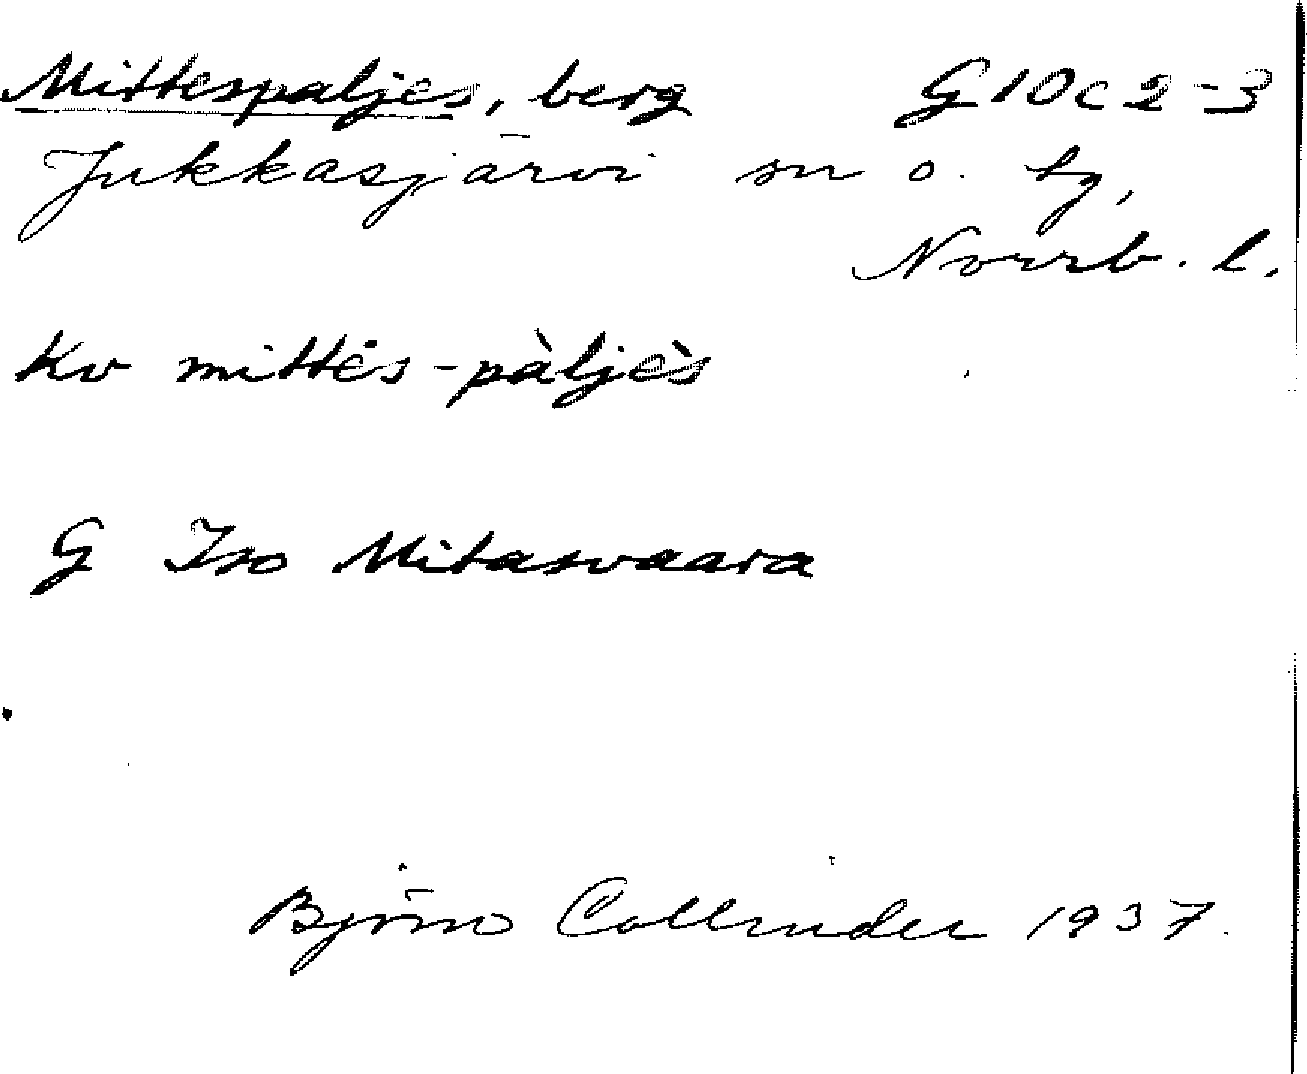 Mittespaljes, berg G 10 c 2-3
Jukkasjärvi sn o. tg,
Norrb. l.
Kv mittės-pàljès
G Iso Mitasvaara
Björn Collinder 1937.